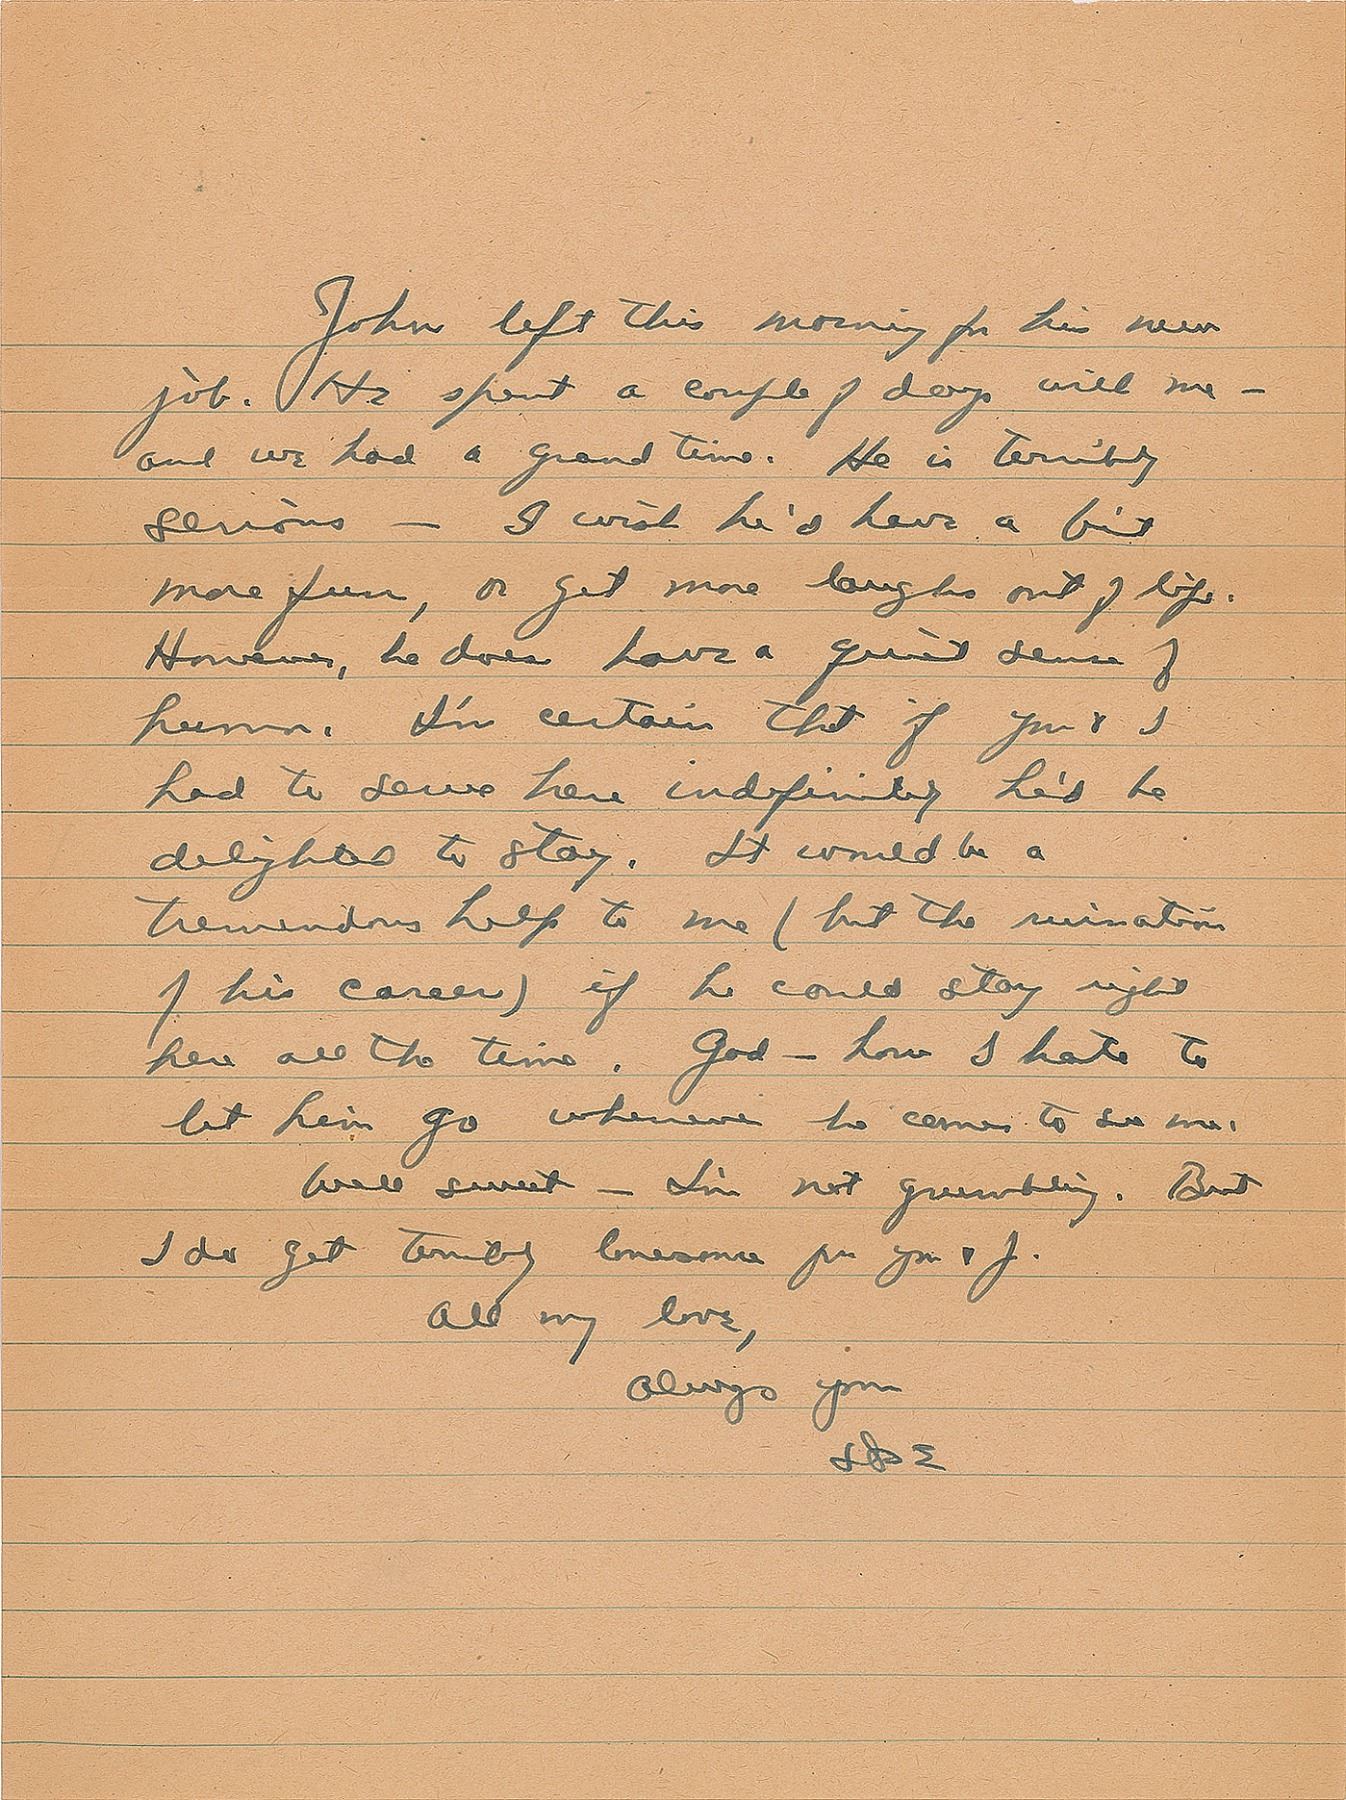 John left this morning for his new
job. He spent a couple of days with me -
and we had a grand time. He is terribly
serious - I wish he'd have a bit
more fun, or get more laughs out of life.
However, he does have a quiet sense of
humor. I'm certain that if you & I
had to serve here indefinitely he'd be
delighted to stay. It would be a
tremendous help to me (but the ruination
of his career) if he could stay right
here all the time. God - how I hate to
let him go whenever he comes to see me.
Well sweet - I'm not grumbling. But
I do get terribly lonesome for you & J.
All my love,
Always your
IDE